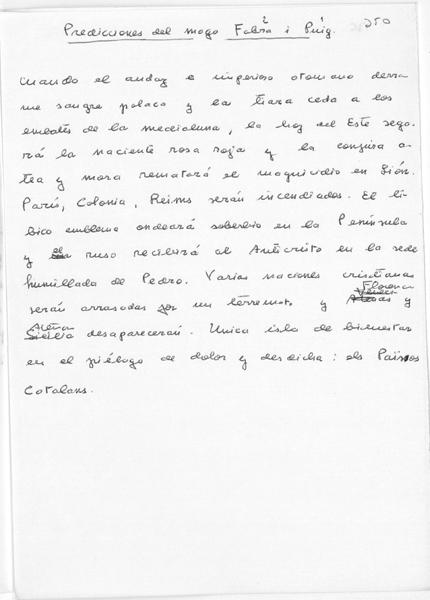 250
Predicciones del mago Fabra i Puig.
Cuando el audaz e imperioso otomano derra
me sangre polaca y la tiara ceda a los
embates de la medialuna, la hoz del Este sega
rá la naciente rosa roja y la conjura a-
tea y mora rematará el maquicidio en Sión.
París, Colonia, Reims serán incendiados. El lí-
bico emblema ondeará soberbio en la Península
y el ruso recibirá al Anticristo en la sede
humillada de Pedro. Varias naciones cristianas
Florencia
serán arrasadas por un terremoto y y
Atenas
Sicilia desaparecerán. Unica isla de bienestar
en el piélago de dolor y desdicha: els Països
Catalans.